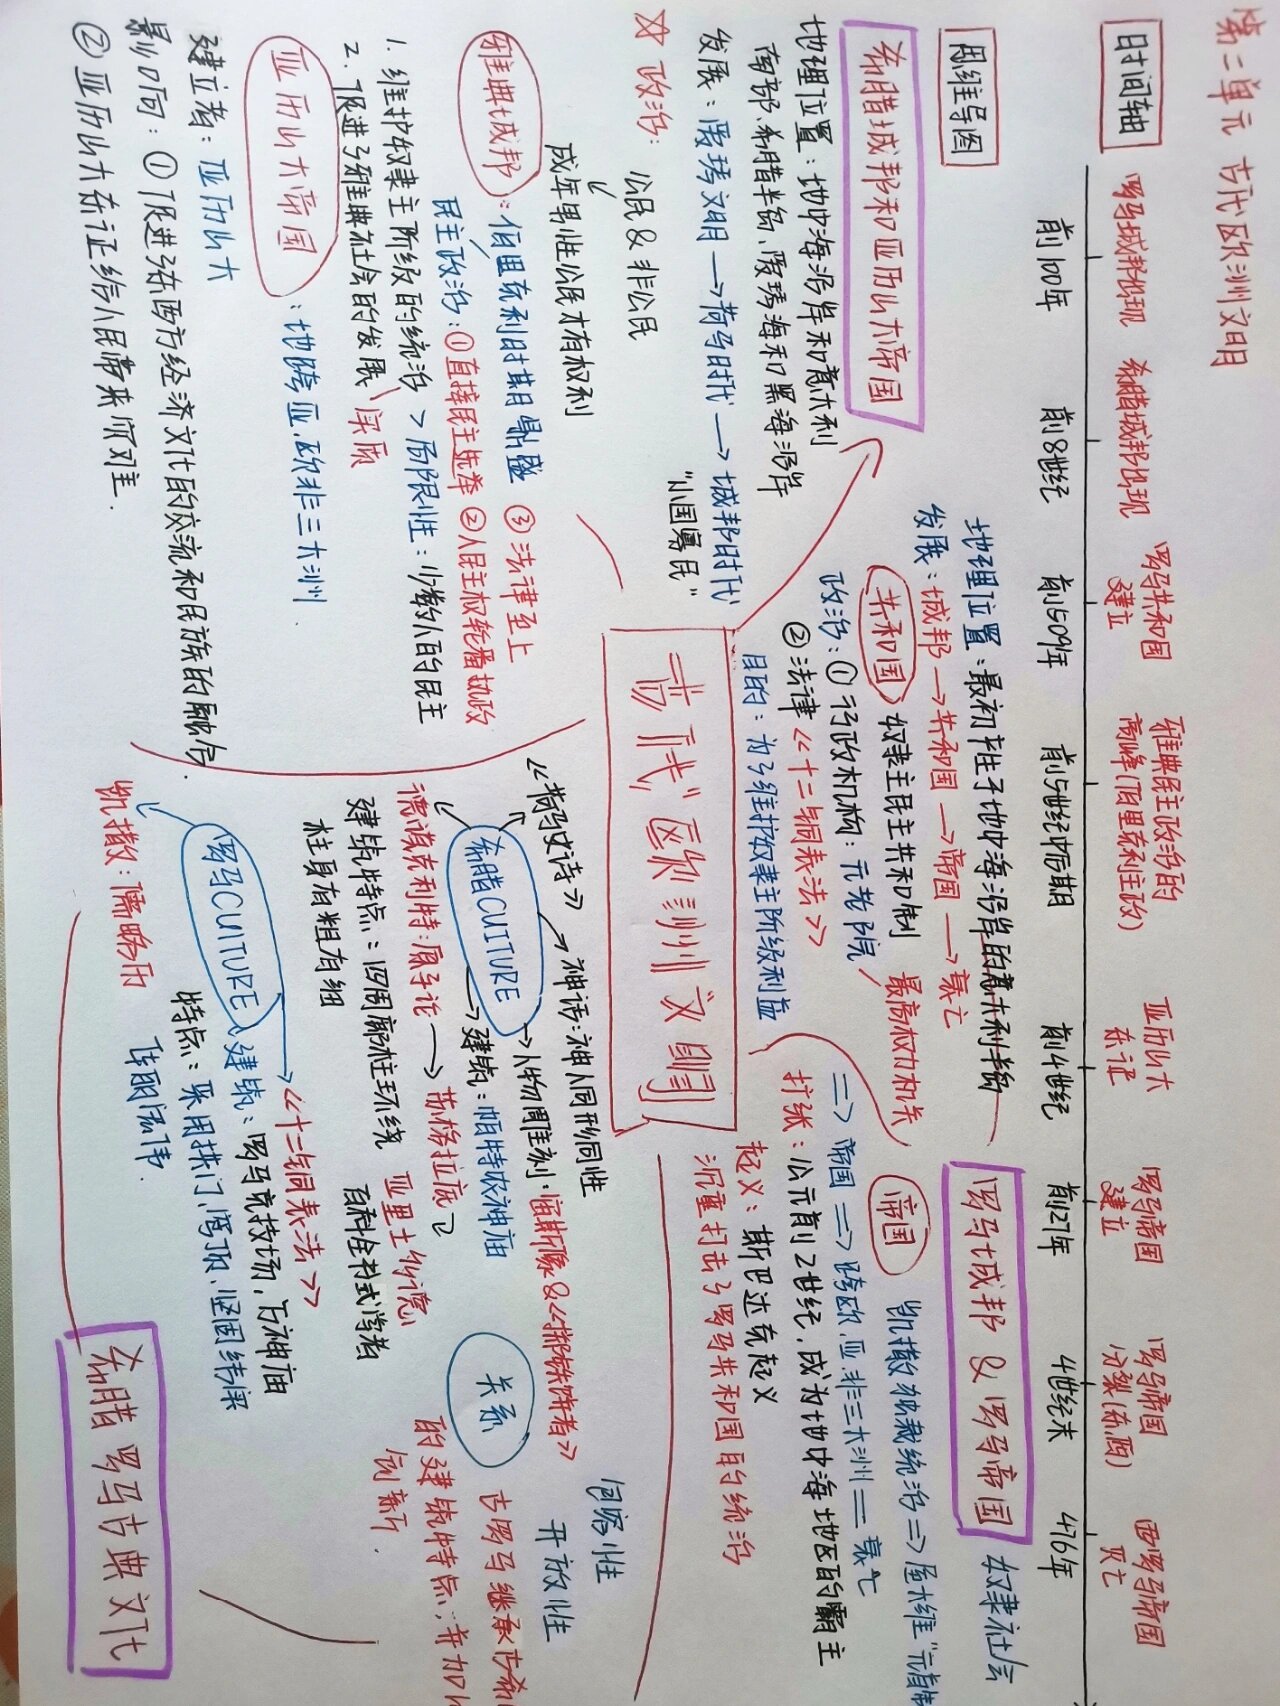 第二单元 古代欧洲文明
时间轴
罗马城邦出现
希腊城邦出现
罗马共和国
建立
雅典民主政治的
高峰(伯里克利主政)
亚历山大
东征
罗马帝国
建立
罗马帝国
分裂(东西)
西罗马帝国
灭亡
前100年
前8世纪
前509年
前5世纪中后期
前4世纪
前27年
4世纪末
476年
思维导图
希腊城邦和亚历山大帝国
地理位置:地中海沿岸和意大利
南部、希腊半岛、爱琴海和黑海沿岸
发展:爱琴文明→荷马时代→城邦时代
"小国寡民"
☆ 政治:
公民&非公民
成年男性公民才有权利
雅典城邦:伯里克利时期鼎盛
民主政治:①直接民主选举 ②人民主权轮番执政
③法律至上
1. 维护奴隶主阶级的统治 > 局限性:少数人的民主
2. 促进了雅典社会的发展 实质
亚历山大帝国:地跨亚、欧、非三大洲
建立者:亚历山大
影响:①促进了东西方经济文化的交流和民族的融合.
②亚历山大东征给人民带来灾难.
古代欧洲文明
罗马城邦 & 罗马帝国
奴隶社会
地理位置:最初产生于地中海沿岸的意大利半岛
发展:城邦→共和国→帝国→衰亡
共和国 奴隶主民主共和制
政治:①行政机构:元老院 最高权力机关
②法律《十二铜表法》
目的:为了维护奴隶主阶级利益
帝国 凯撒独裁统治⇒屋大维"元首制
⇒帝国⇒跨欧、亚、非三大洲=衰亡
扩张:公元前2世纪,成为地中海地区的霸主
起义:斯巴达克起义
沉重打击了罗马共和国的统治
希腊罗马古典文化
希腊CUITURE
《荷马史诗》
神话:神人同形同性
人物雕刻:宙斯像&《掷铁饼者》
建筑:帕特农神庙
德谟克利特:原子论→苏格拉底
亚里士多德
百科全书式学者
建筑特点:四周廊柱环绕
柱身有粗有细
罗马CUITURE
《十二铜表法》
建筑:罗马竞技场,万神庙
特点:采用拱门,穹顶,坚固
华丽宏伟.
凯撒:儒略历
关系
包容性
开放性
古罗马继承古希
的建筑特点,并加以
创新